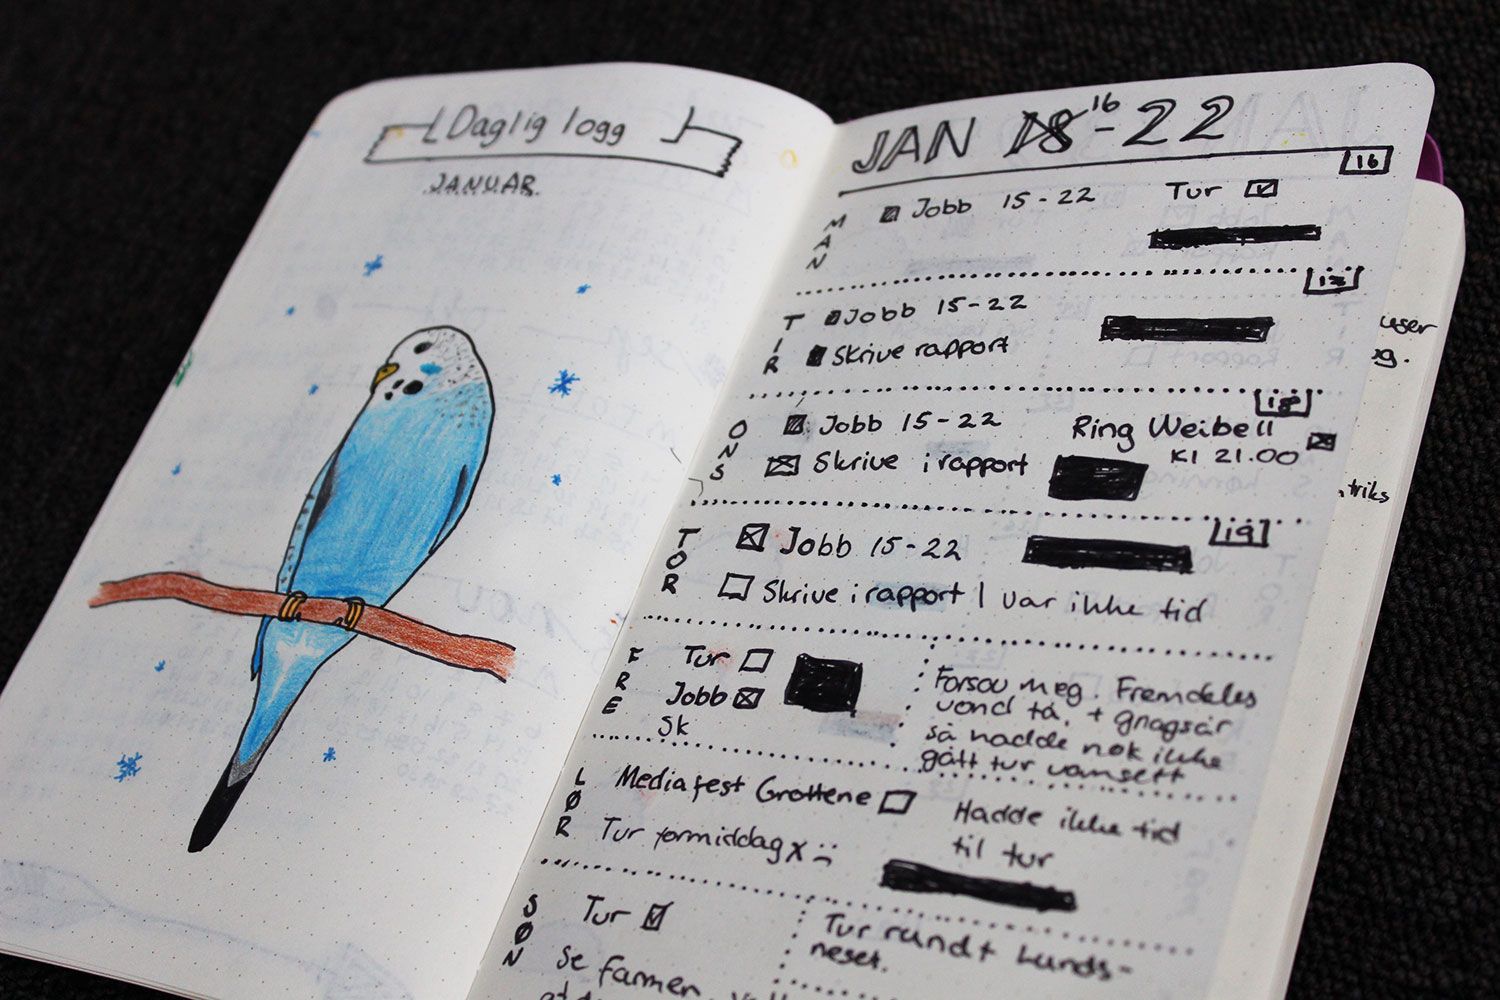 Daglig logg
JANUAR
JAN 18 16 - 22
16
MAN
Jobb 15-22 Tur
17
TIR
Jobb 15-22
Skrive rapport
18
ONS
Jobb 15-22
Ring Weibell
Kl 21.00
Skrive i rapport
19
TOR
Jobb 15-22
Skrive i rapport | var ikke tid
FRE
Tur
Jobb
Sk
Forsov meg. Fremdeles
vond tå, + gnagsår
så hadde nok ikke
gått tur uansett
LØR
Mediafest Grottene
Tur formiddag x :(
Hadde ikke tid
til tur
SØN
Tur
Tur rundt Lunds-
neset.
Se farmen
user
og.
triks